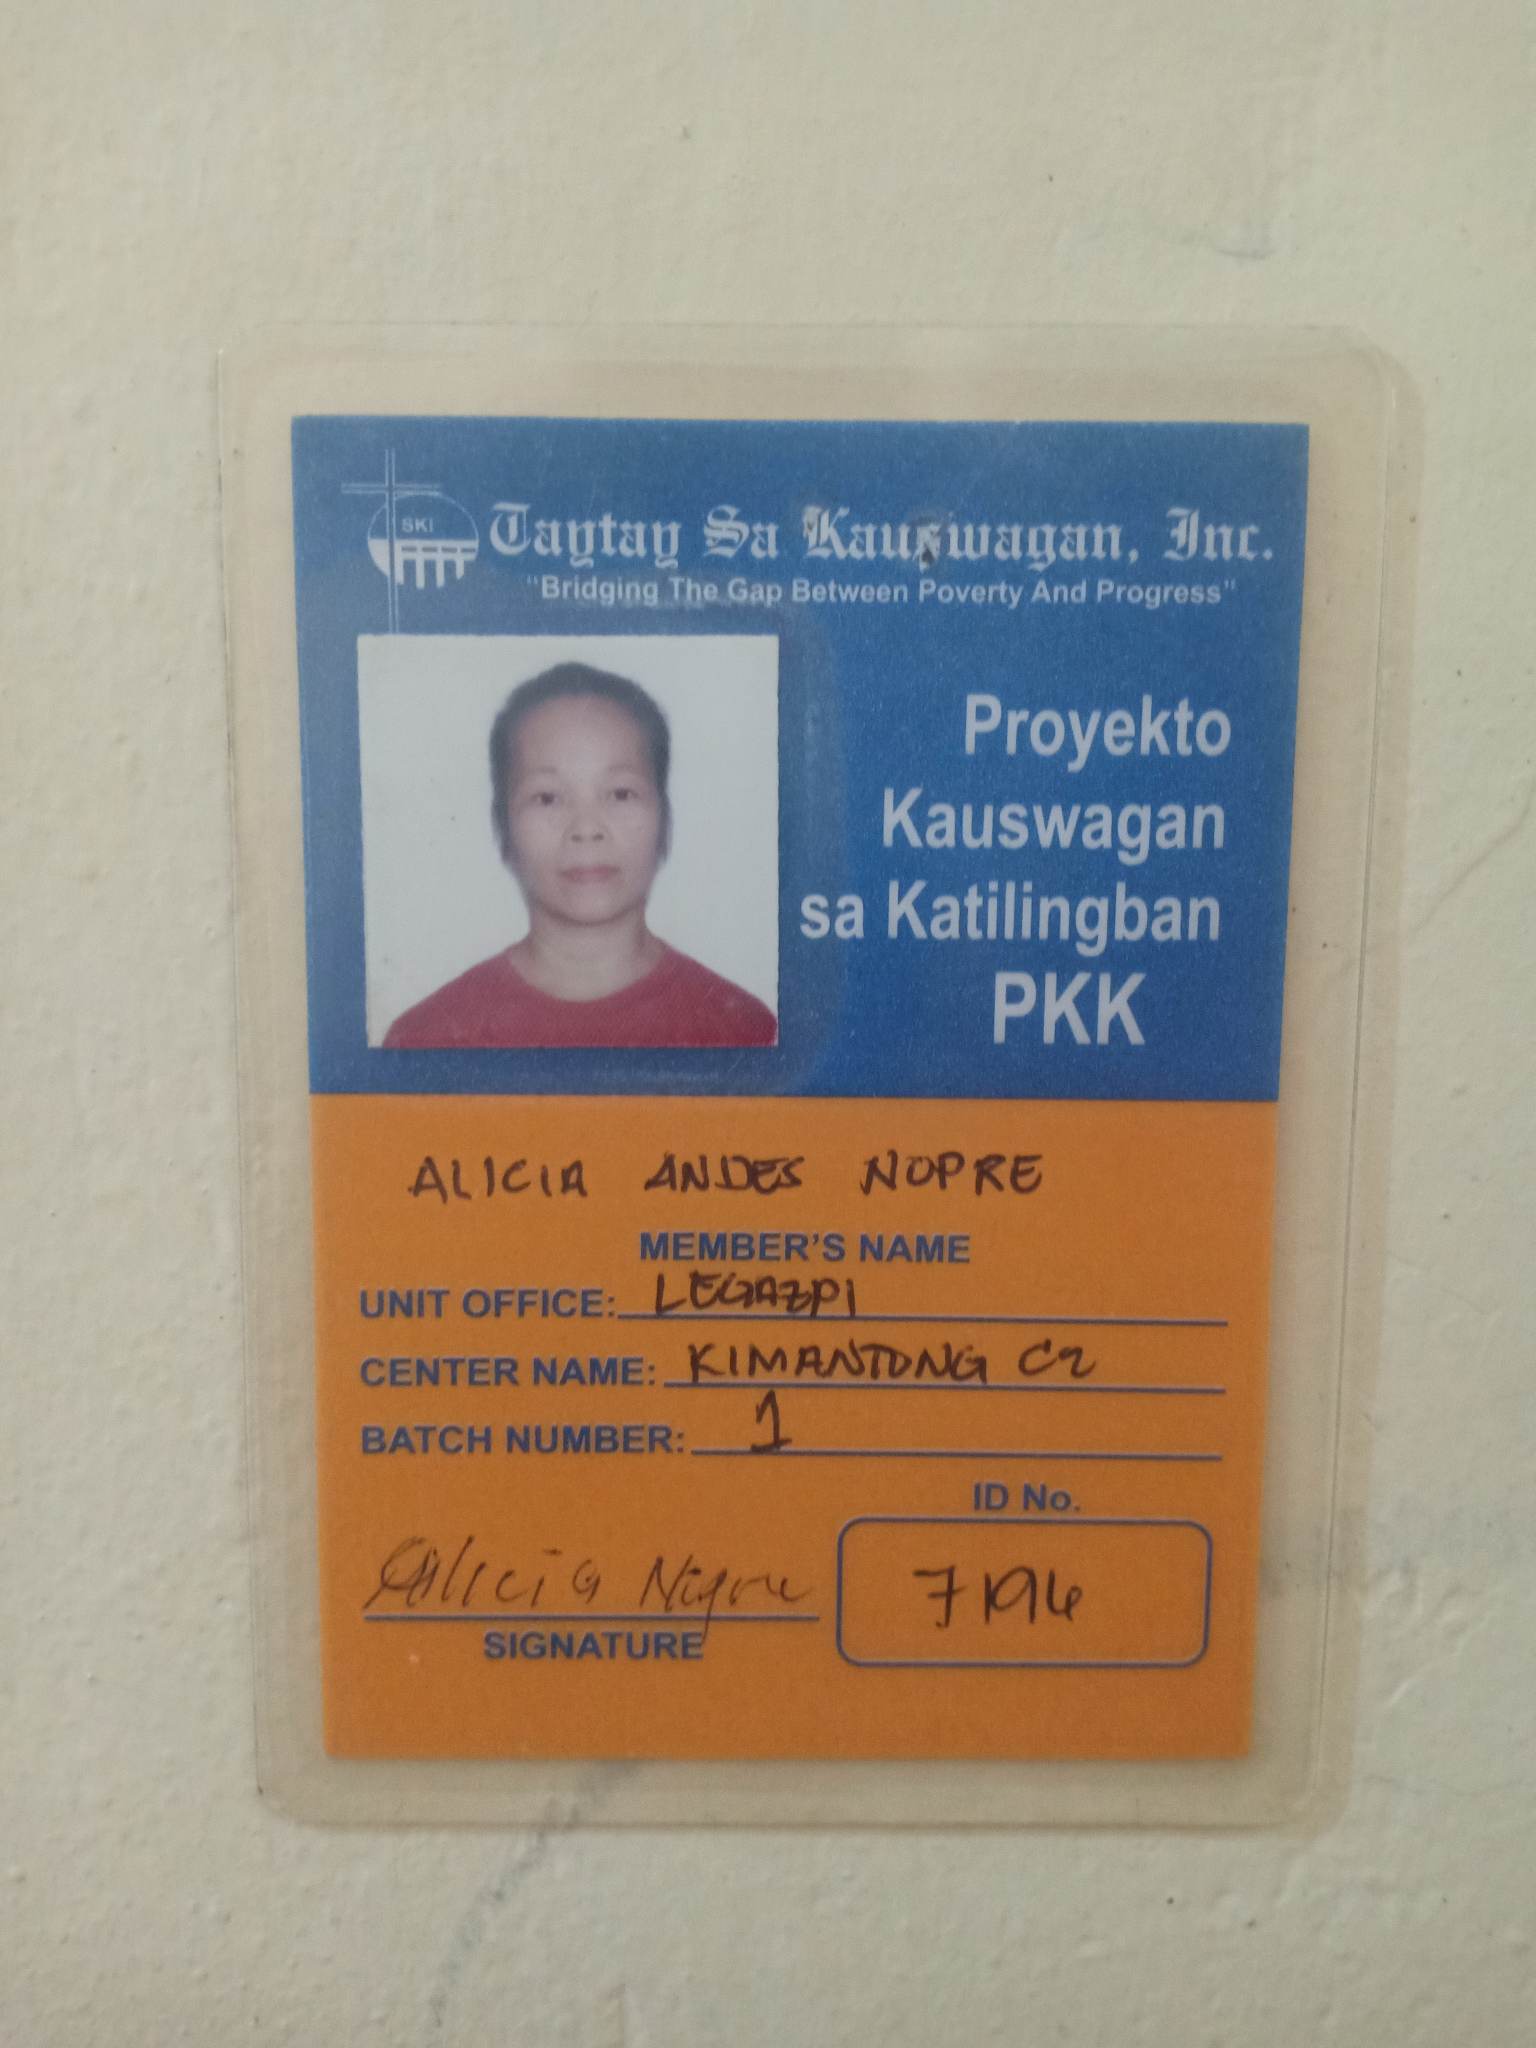 SKI
Taytay Sa Kauswagan, Inc.
"Bridging The Gap Between Poverty And Progress"
Proyekto
Kauswagan
sa Katilingban
PKK
ALICIA ANDES NOPRE
MEMBER'S NAME
UNIT OFFICE: LEGAZPI
CENTER NAME: KIMANTONG C2
BATCH NUMBER: 1
ID No.
7196
Alicia
SIGNATURE